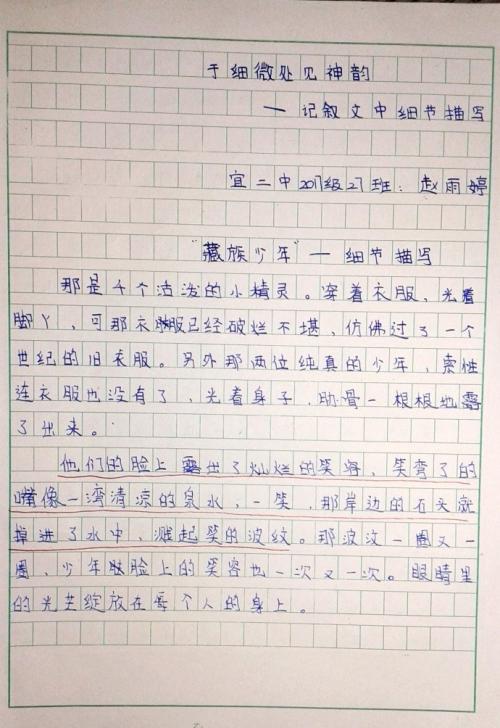 于细微处见神韵
——记叙文中细节描写
宜二中2017级27班：赵雨婷
“藏族少年”——细节描写
那是千个活泼的小精灵。穿着衣服、光着
脚丫，可那衣服已经破烂不堪，仿佛过了一个
世纪的旧衣服。另外那两位纯真的少年，索性
连衣服也没有了，光着身子，肋骨一根根地露
了出来。
他们的脸上露出了灿烂的笑容，笑弯了的
嘴像一湾清凉的泉水，一笑，那岸边的石头就
掉进了水中，溅起笑的波纹。那波汶一圈又一
圈，少年脸上的笑容也一次又一次。眼睛里
的光芒绽放在每个人的身上。